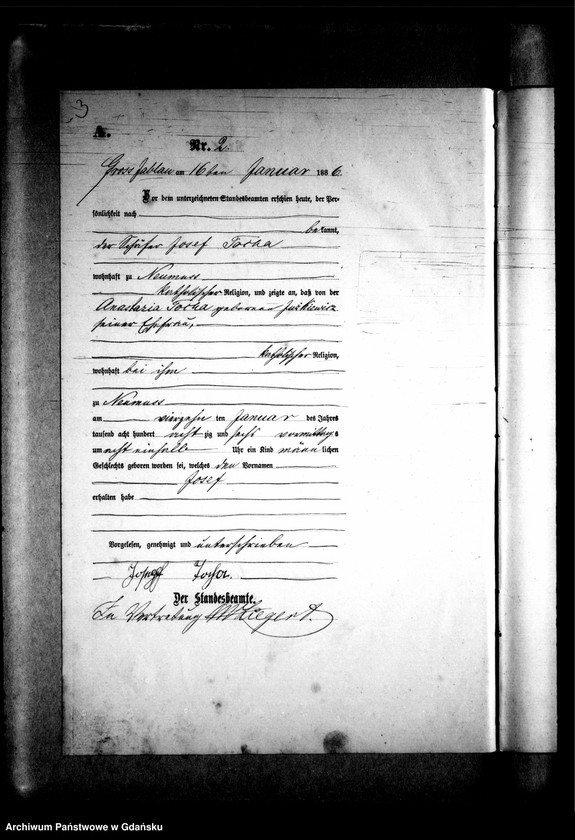 3
A.
Nr. 2.
Gross Jablau am 16ten Januar 1886.
Vor dem unterzeichneten Standesbeamten erschien heute, der Per-
sönlichkeit nach
bekannt,
der Schäfer Josef
wohnhaft zu Neumuss
katholischer Religion, und zeigte an, daß von der
Anastasia geborenen
seiner Ehefrau,
katholischer Religion,
wohnhaft bei ihm
zu Neumuss
am vierzehn ten Januar des Jahres
tausend acht hundert acht zig und sechs vormittags
um acht einhalb Uhr ein Kind männlichen
Geschlechts geboren worden sei, welches den Vornamen
Josef
erhalten habe
Vorgelesen, genehmigt und unterschrieben
Der Standesbeamte.
In Vertretung
Archiwum Państwowe w Gdańsku